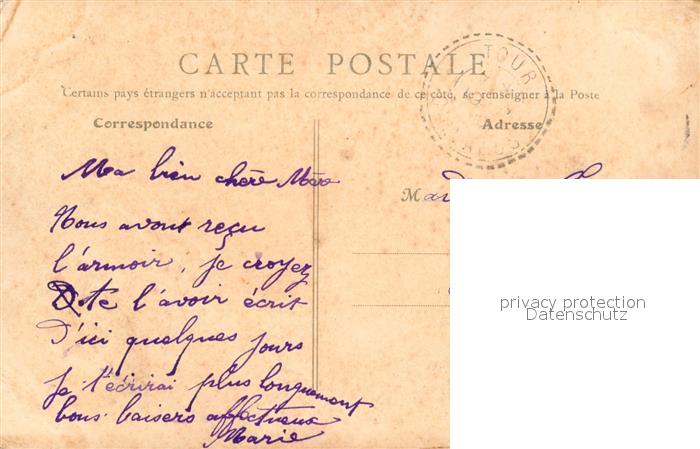 CARTE POSTALE
Certains pays étrangers n'acceptant pas la correspondance de ce côté, se renseigner à la Poste
TOUR
Correspondance
Adresse
Ma bien chère Mère
Nous avont reçu
l'armoir, je croyez
te l'avoir écrit
D'ici quelques jours
je t'écrirai plus longuement
bons baisers affectueux
Marie
M
privacy protection
Datenschutz